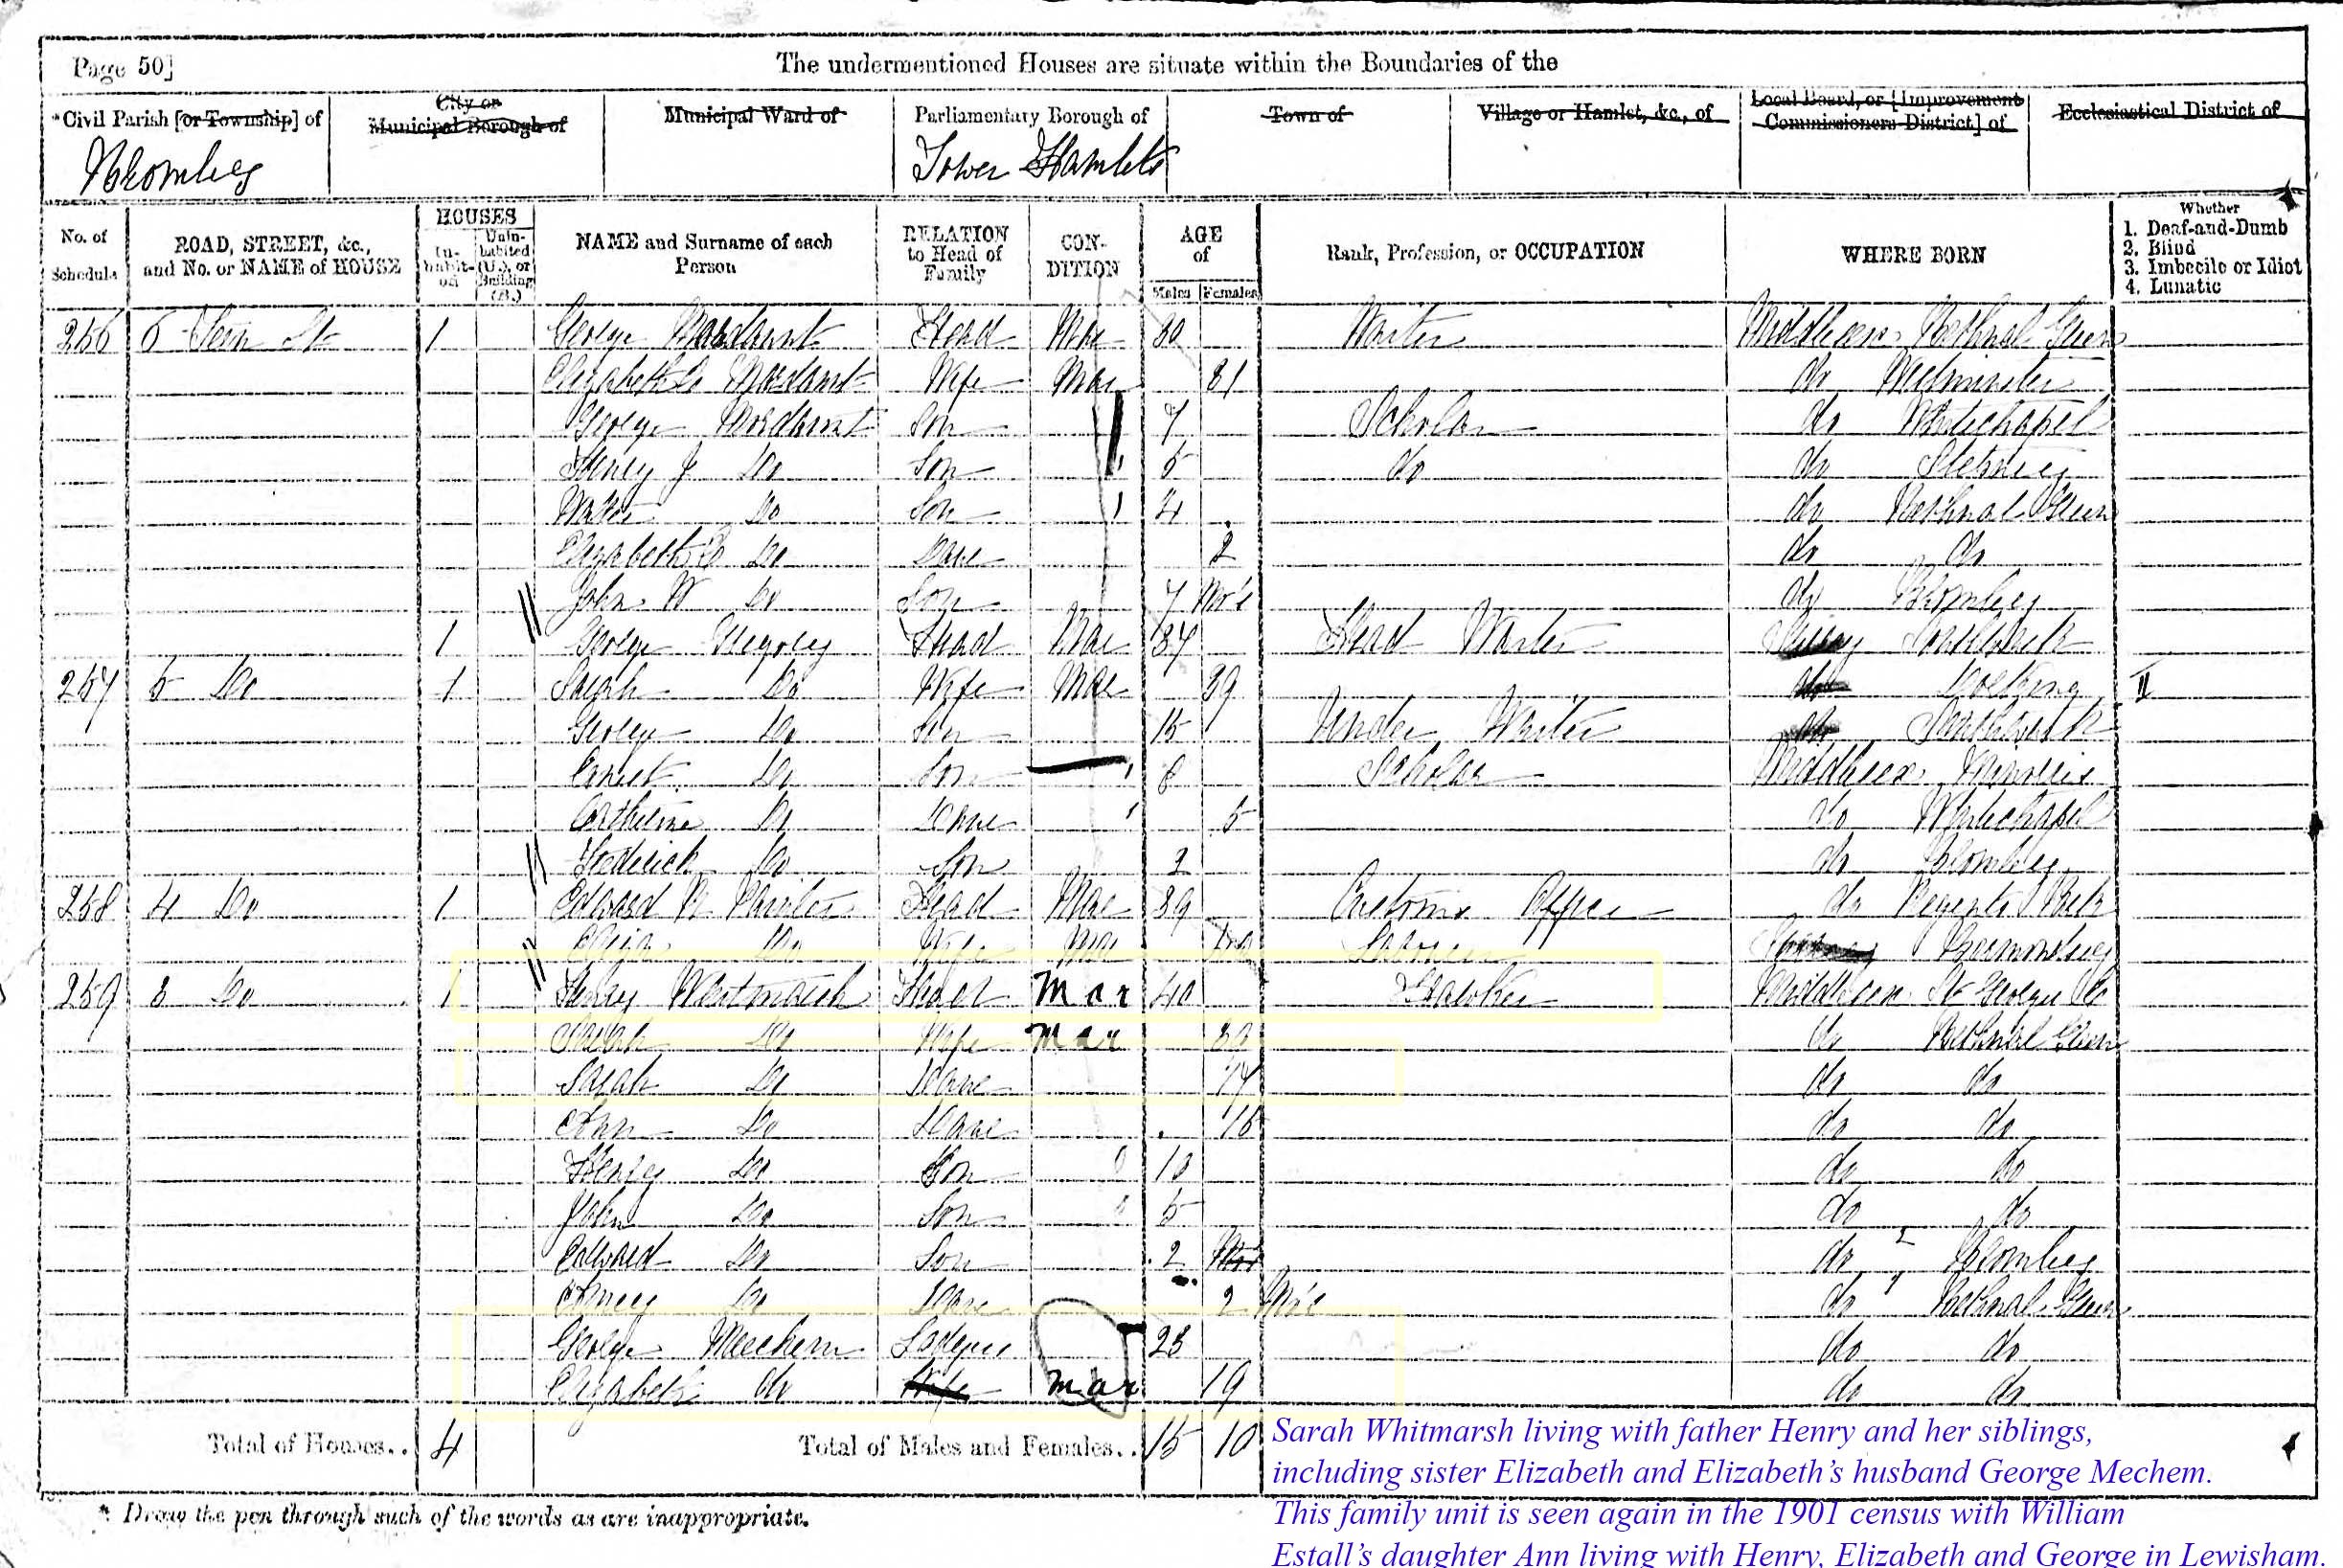 Page 50]
The undermentioned Houses are situate within the Boundaries of the
*Civil Parish [or Township] of
City or Municipal Borough of
Municipal Ward of
Parliamentary Borough of
Town of
Village or Hamlet, &c., of
Local Board, or [Improvement Commissioners District] of
Ecclesiastical District of
Bromley
Tower Hamlets
No. of Schedule
ROAD, STREET, &c., and No. or NAME of HOUSE
HOUSES
In-habit-ed
Unin-habited (U.), or Building (B.)
NAME and Surname of each Person
RELATION to Head of Family
CON-DITION
AGE of
Males
Females
Rank, Profession, or OCCUPATION
WHERE BORN
Whether
1. Deaf-and-Dumb
2. Blind
3. Imbecile or Idiot
4. Lunatic
256 6 St 1 George Head Mar 30 Middlesex Bethnal Green
Elizabeth Mordaunt Wife Mar 31 do Westminster
George Mordaunt Son 7 Scholar do Whitechapel
Henry J Do Son 5 do do Stepney
Walter Do Son 4 do Bethnal Green
Elizabeth Do Daur 2 do do
John W Do Son 7 Mo's do Bromley
1 George Head Mar 37 Head Surrey Southwark
257 5 Do 1 Sarah Do Wife Mar 39 do Dorking
George Do Son 15 Under do Southwark
Ernest Do Son 8 Scholar Middlesex Minories
Do Daur 5 do Whitechapel
Frederick Do Son 2 do Bromley
258 4 Do 1 Edward Head Mar 39 Customs Officer do Regents Park
Eliza Do Wife Mar Surrey Bermondsey
259 3 Do 1 Henry Head Mar 40 Hawker Middlesex St Georges
Sarah Do Wife Mar do Bethnal Green
Sarah Do Daur 17 do do
Ann Do Daur 15 do do
Henry Do Son 10 do do
John Do Son 5 do do
Edward Do Son 2 Mo's do Bromley
Do Daur 2 Mo's do Bethnal Green
George Meechem Lodger 23 do do
Elizabeth do Wife Mar 19 do do
Total of Houses.. 4
Total of Males and Females.. 15 10
Sarah Whitmarsh living with father Henry and her siblings,
including sister Elizabeth and Elizabeth’s husband George Mechem.
This family unit is seen again in the 1901 census with William
Estall’s daughter Ann living with Henry, Elizabeth and George in Lewisham.
* Draw the pen through such of the words as are inappropriate.